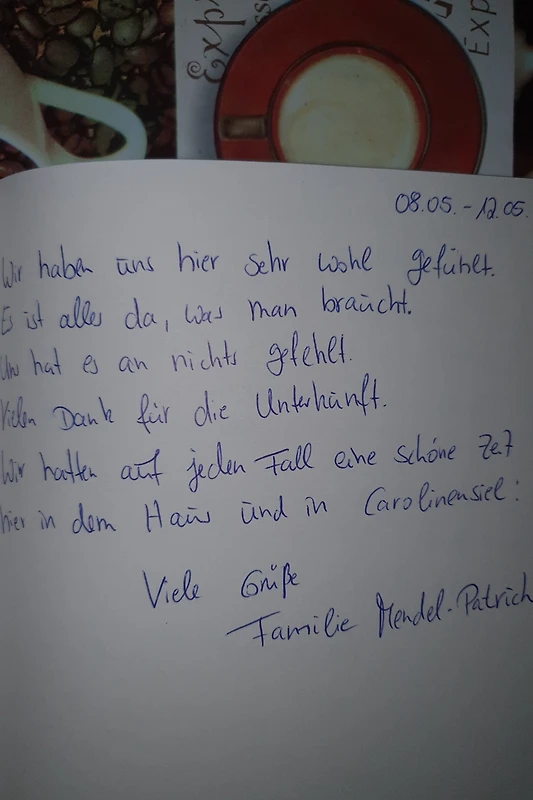 Exp
Exp
08.05. - 12.05.
Wir haben uns hier sehr wohl gefühlt.
Es ist alles da, was man braucht.
Uns hat es an nichts gefehlt.
Vielen Dank für die Unterkunft.
Wir hatten auf jeden Fall eine schöne Zeit
hier in dem Haus und in Carolinensiel.
Viele Grüße
Familie Mendel-Patrich